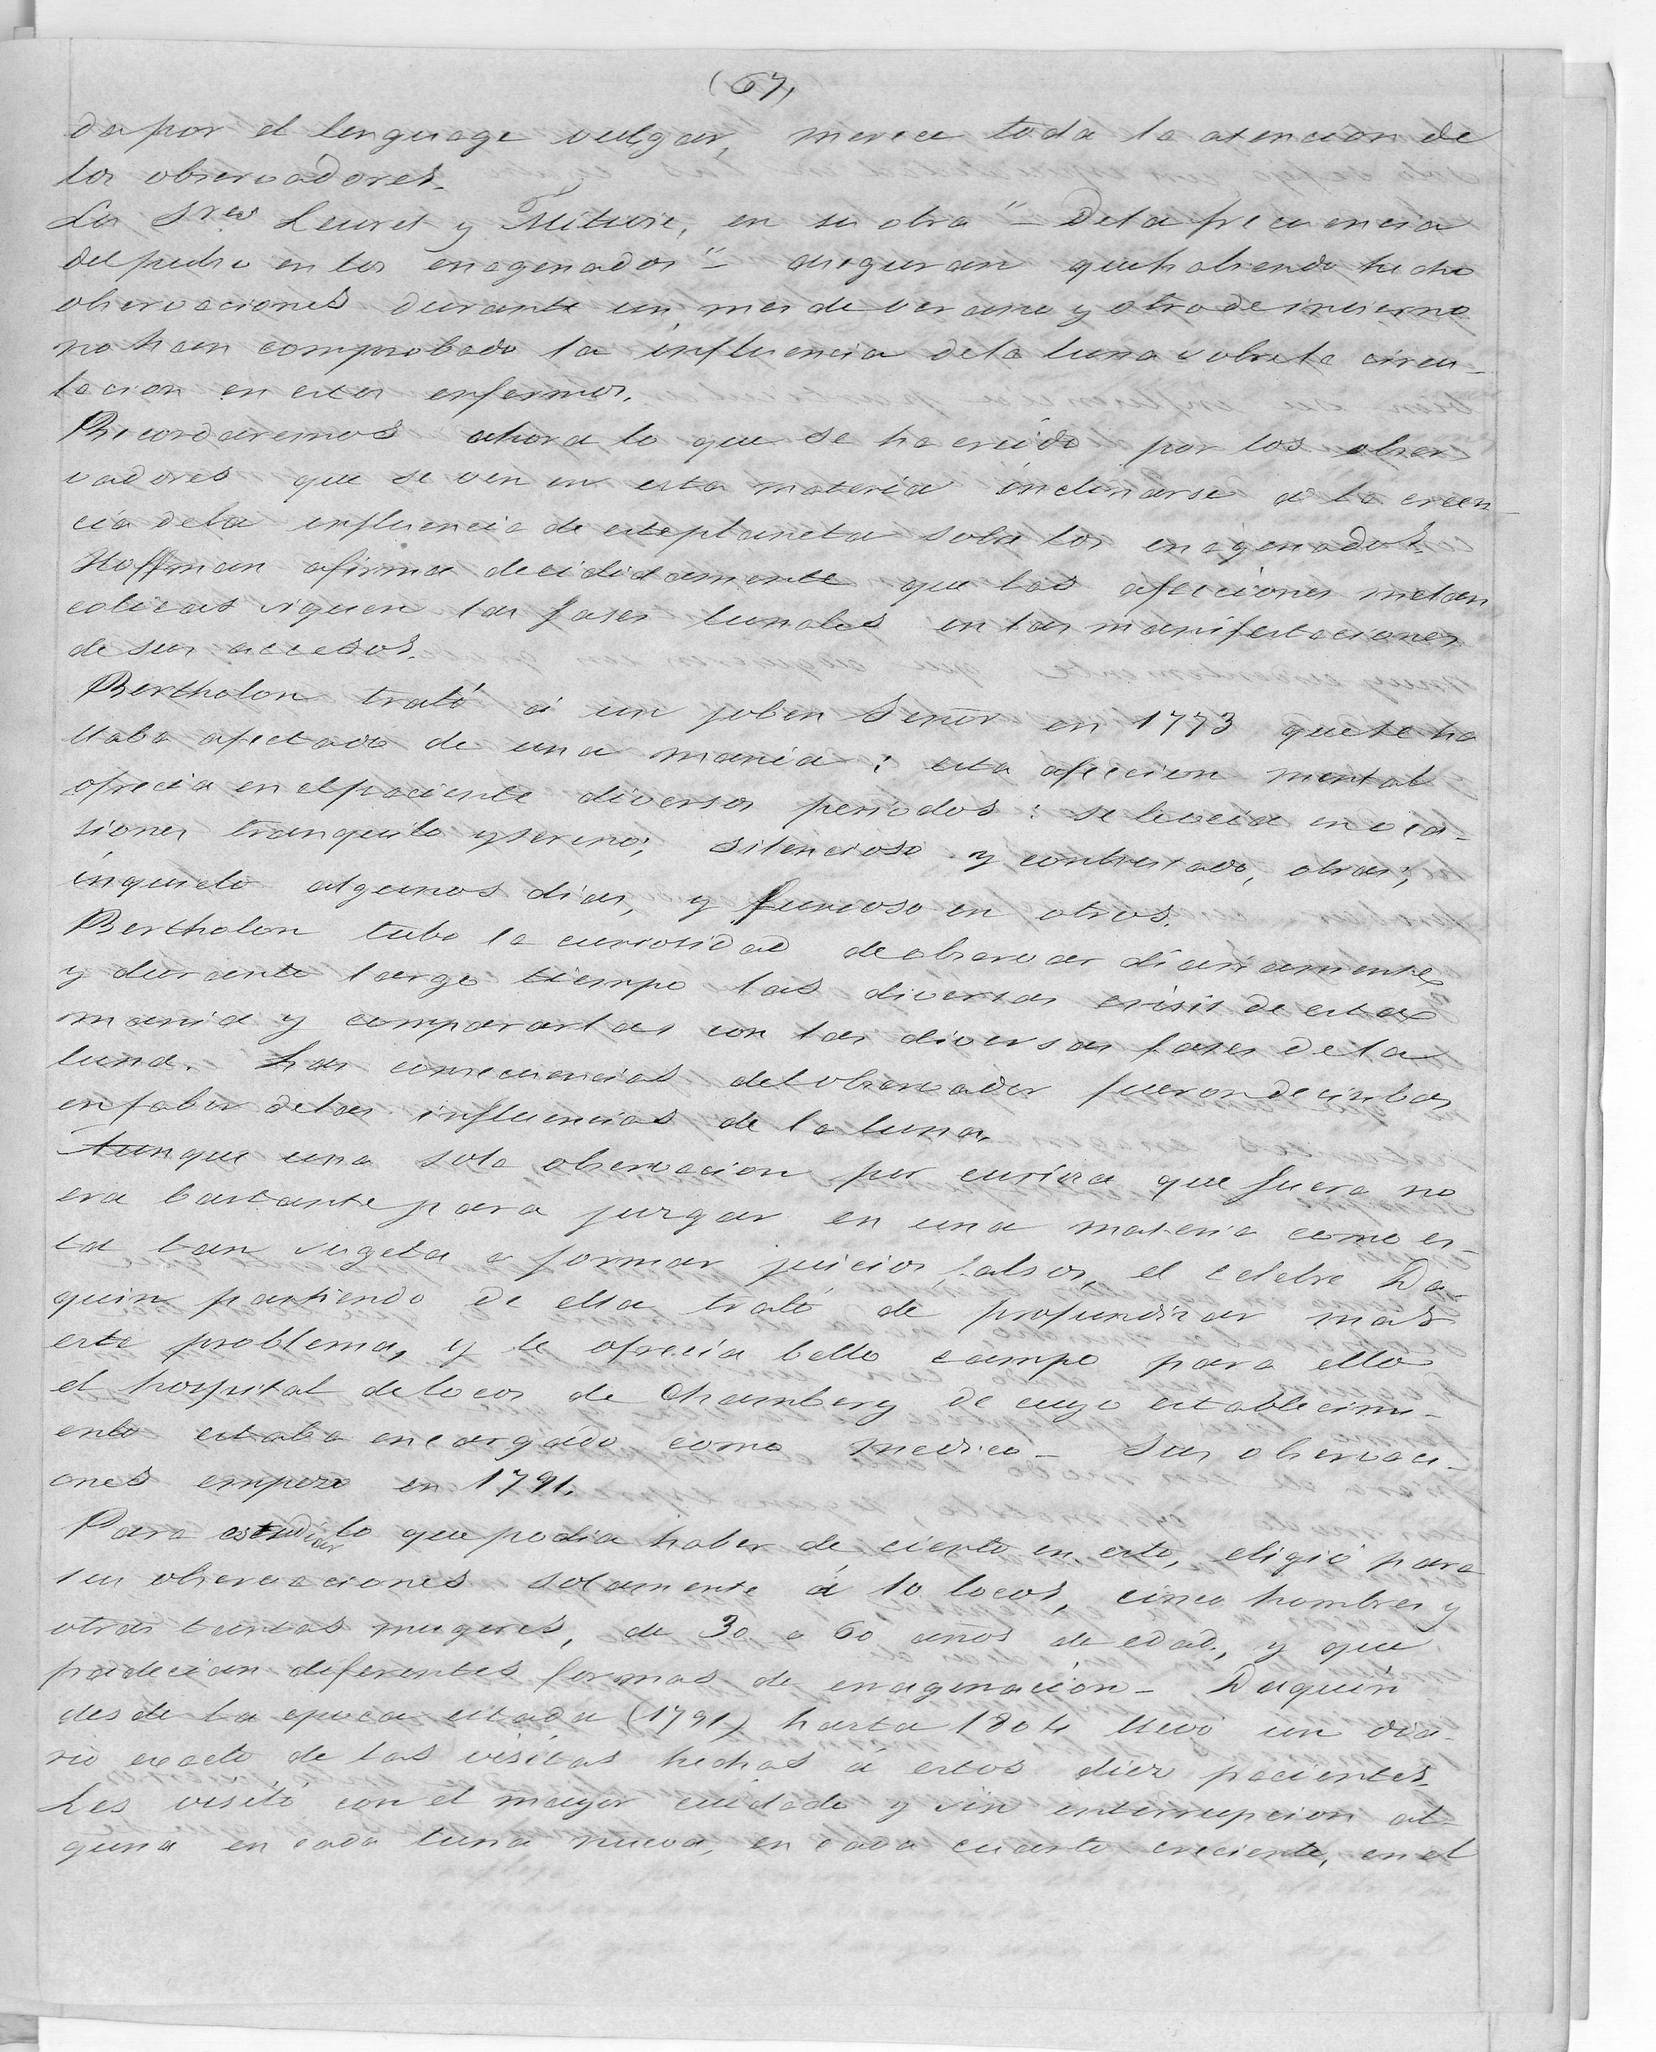 (67)
da por el lenguage vulgar, merece toda la atencion de
los observadores.
Los Sres Leuret y Mitivie, en su obra "— De la frecuencia
del pulso en los enagenados" — aseguran que habiendo hecho
observaciones durante un mes de verano y otro de invierno
no han comprobado la influencia de la luna sobre la circu-
lacion en estos enfermos.
Recordaremos ahora lo que se ha creido por los obser
vadores que se ven en esta materia inclinarse a la creen-
cia de la influencia de este planeta sobre los enagenados.
Hoffman afirma decididamente que las afecciones melan
colicas siguen las fases lunales en las manifestaciones
de sus accesos.
Bertholon trató á un joben Señor en 1773 que se ha
llaba afectado de una mania: esta afeccion mental
ofrecia en el paciente diversos periodos: se le veia en oca-
siones tranquilo y sereno; silencioso y contristado, otras;
inquieto algunos dias, y furioso en otros.
Bertholon tubo la curiosidad de observar diariamente
y durante largo tiempo las diversas crisis de esta
mania y compararlas con las diversas fases de la
luna. Las consecuencias del observador fueron decisibas
en fabor de las influencias de la luna.
Aunque una sola observacion por curiosa que fuera no
era bastante para juzgar en una materia como es-
ta tan sugeta a formar juicios falsos, el celebre Da-
quin partiendo de ella trató de profundizar más
este problema, y le ofrecia bello campo para ello
el hospital de locos de Chambery de cuyo establecimi-
ento estaba encargado como medico — Sus observaci-
ones empezo en 1791.
Para estudiar lo que podia haber de cierto en esto, eligió para
sus observaciones solamente á 10 locos, cinco hombres y
otras tantas mugeres, de 30 a 60 años de edad, y que
padecian diferentes formas de enagenacion — Daquin
desde la epoca citada (1791) hasta 1804 llevó un dia-
rio exacto de las visitas hechas á estos diez pacientes.
Les visitó con el mayor cuidado y sin interrupcion al-
guna en cada luna nueva, en cada cuarto creciente, en el